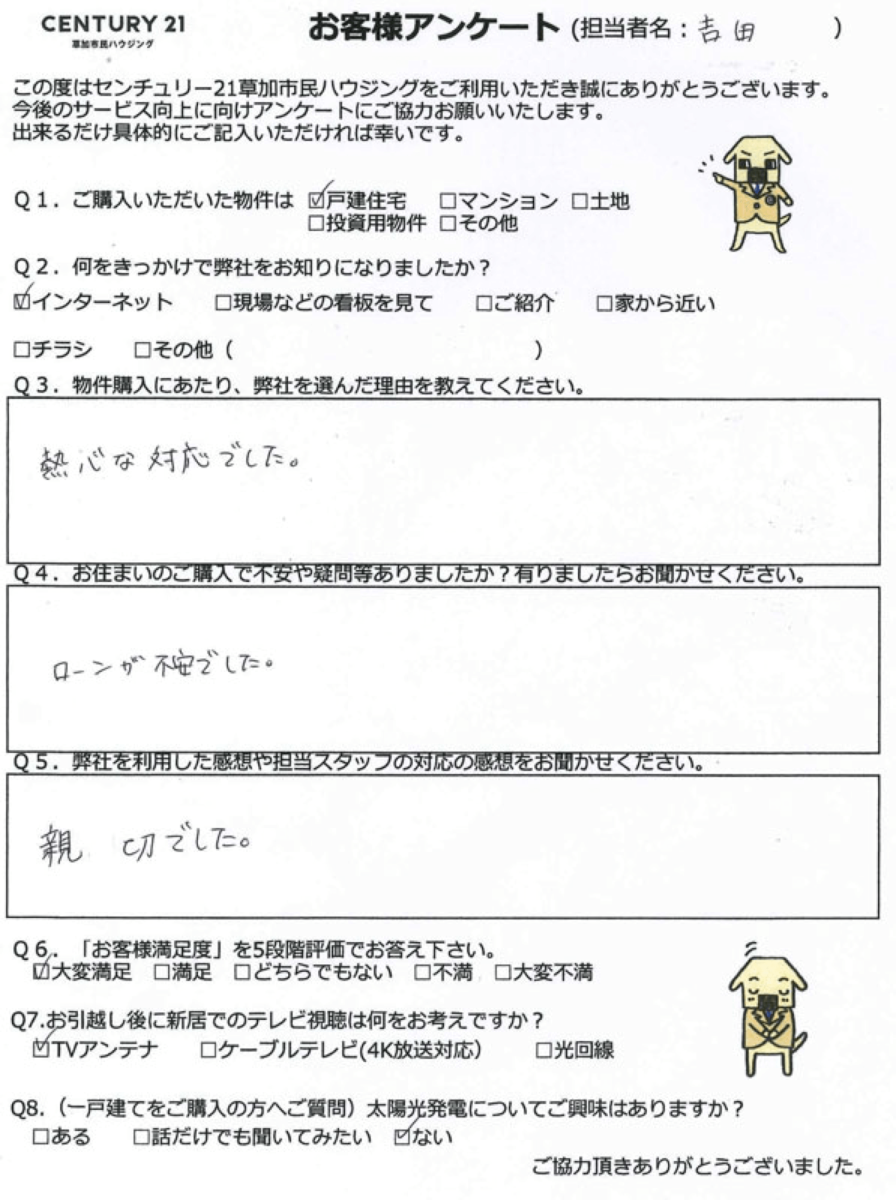 CENTURY 21
草加市民ハウジング
お客様アンケート (担当者名：吉田 )
この度はセンチュリー21草加市民ハウジングをご利用いただき誠にありがとうございます。
今後のサービス向上に向けアンケートにご協力お願いいたします。
出来るだけ具体的にご記入いただければ幸いです。
Ｑ１．ご購入いただいた物件は ☑戸建住宅 □マンション □土地
□投資用物件 □その他
Ｑ２．何をきっかけで弊社をお知りになりましたか？
☑インターネット □現場などの看板を見て □ご紹介 □家から近い
□チラシ □その他（ ）
Ｑ３．物件購入にあたり、弊社を選んだ理由を教えてください。
熱心な対応でした。
Ｑ４．お住まいのご購入で不安や疑問等ありましたか？有りましたらお聞かせください。
ローンが不安でした。
Ｑ５．弊社を利用した感想や担当スタッフの対応の感想をお聞かせください。
親 切でした。
Ｑ６．「お客様満足度」を5段階評価でお答え下さい。
☑大変満足 □満足 □どちらでもない □不満 □大変不満
Q7.お引越し後に新居でのテレビ視聴は何をお考えですか？
☑TVアンテナ □ケーブルテレビ(4K放送対応） □光回線
Q8.（一戸建てをご購入の方へご質問）太陽光発電についてご興味はありますか？
□ある □話だけでも聞いてみたい ☑ない
ご協力頂きありがとうございました。